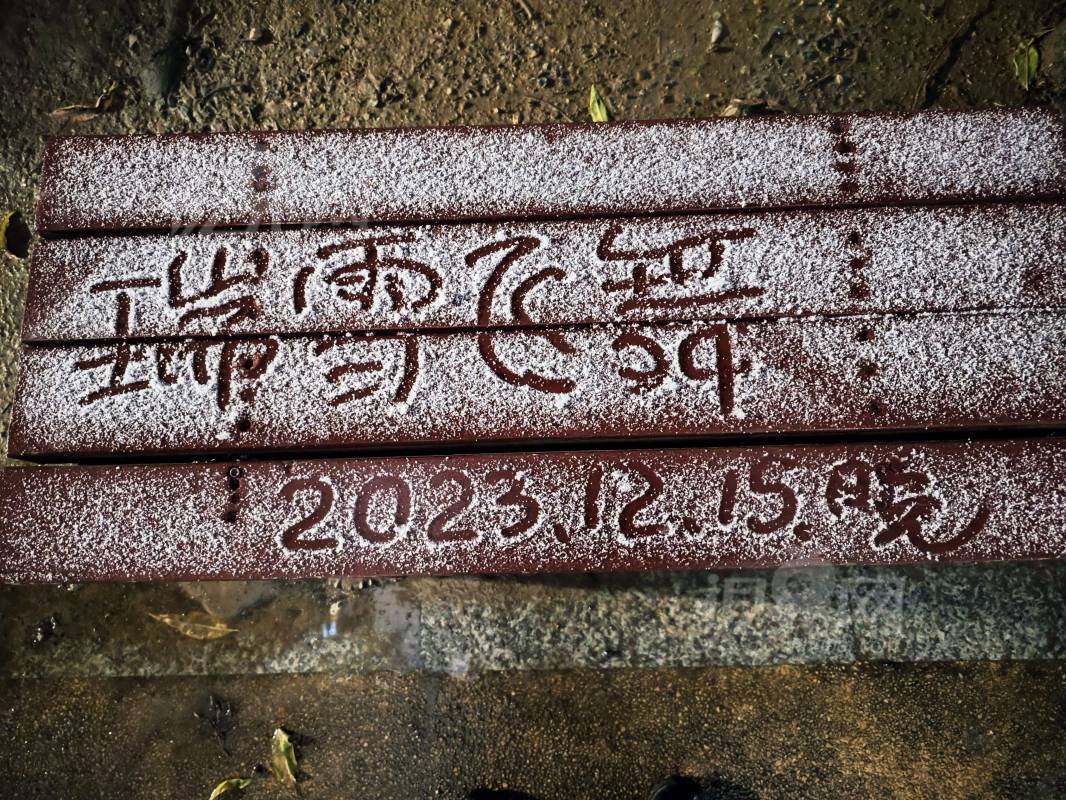 瑞雪飞舞
2023.12.15.晚